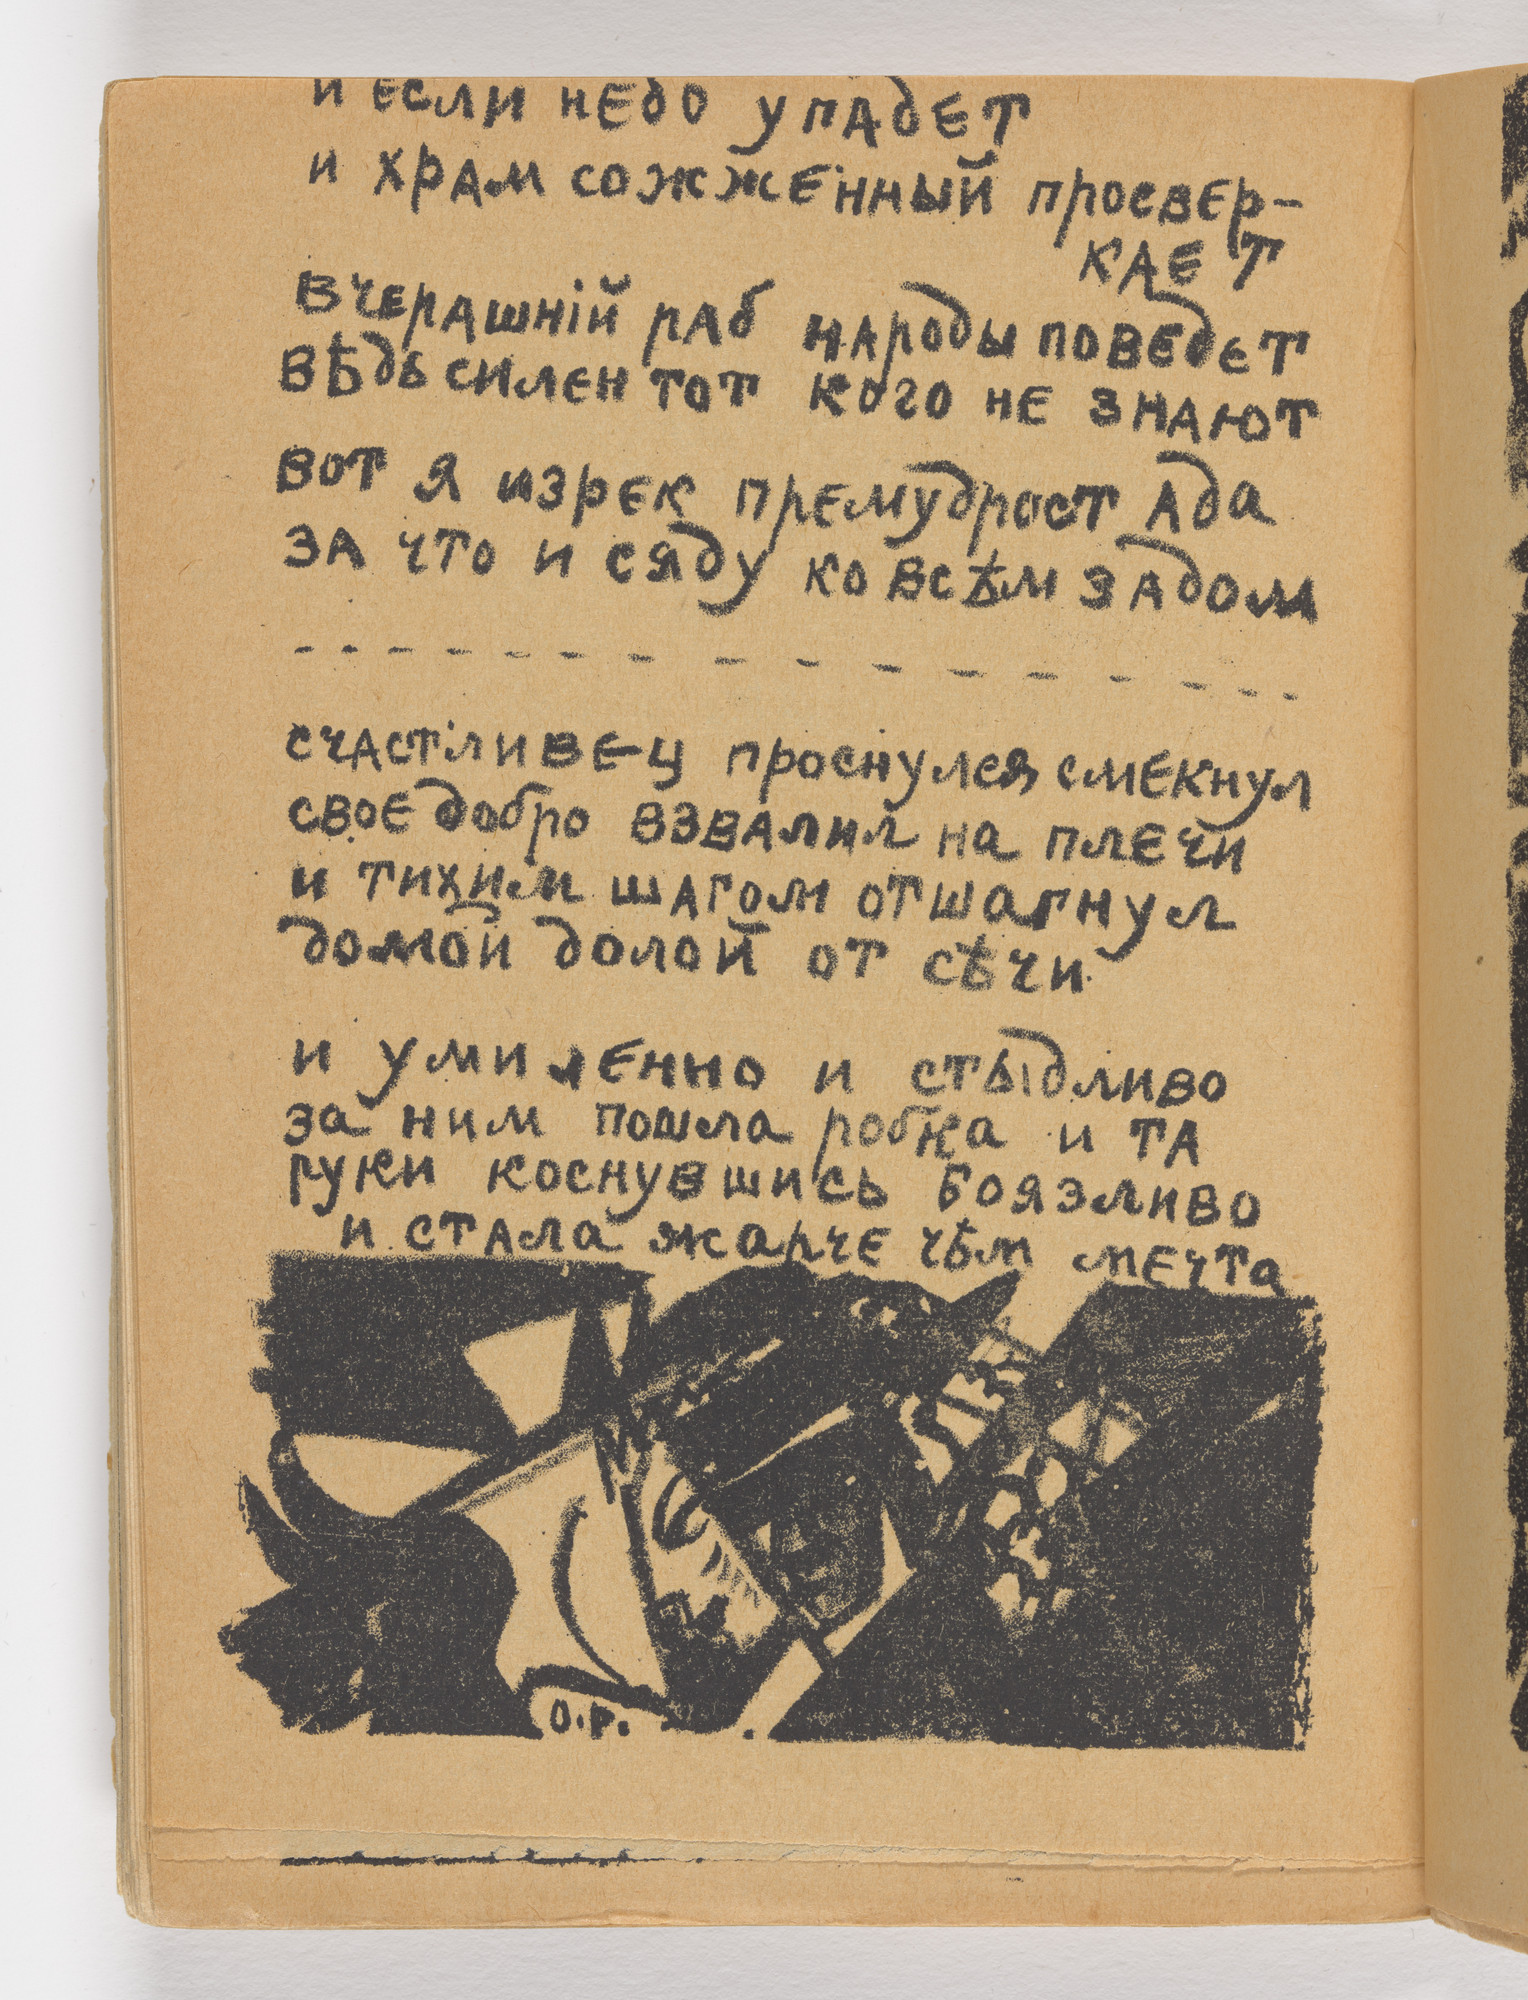 и если небо упадет
и храм сожженный просвер-
кает
вчерашнiй раб народы поведет
вѣдь силен тот кого не знают
вот я изрек премудрост ада
за что и сяду ко всѣм задом
- - - - - - - - - - - - - -
счастливец проснулся смекнул
свое добро взвалил на плечи
и тихим шагом отшагнул
домой долой от сѣчи
и умиленно и стыдливо
за ним пошла робка и та
руки коснувшись боязливо
и стала жарче чѣм мечта
О.Р.